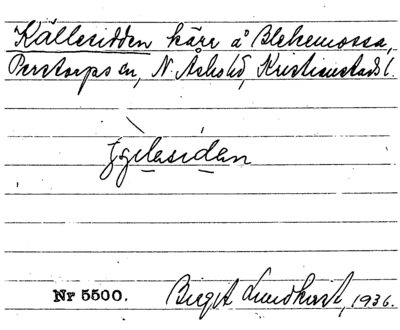 Källesidden kärr å Blekemossa,
Perstorps sn, N. Åsbohd, Kristianstads l.
Nr 5500. Birgit Lundkvist, 1936.